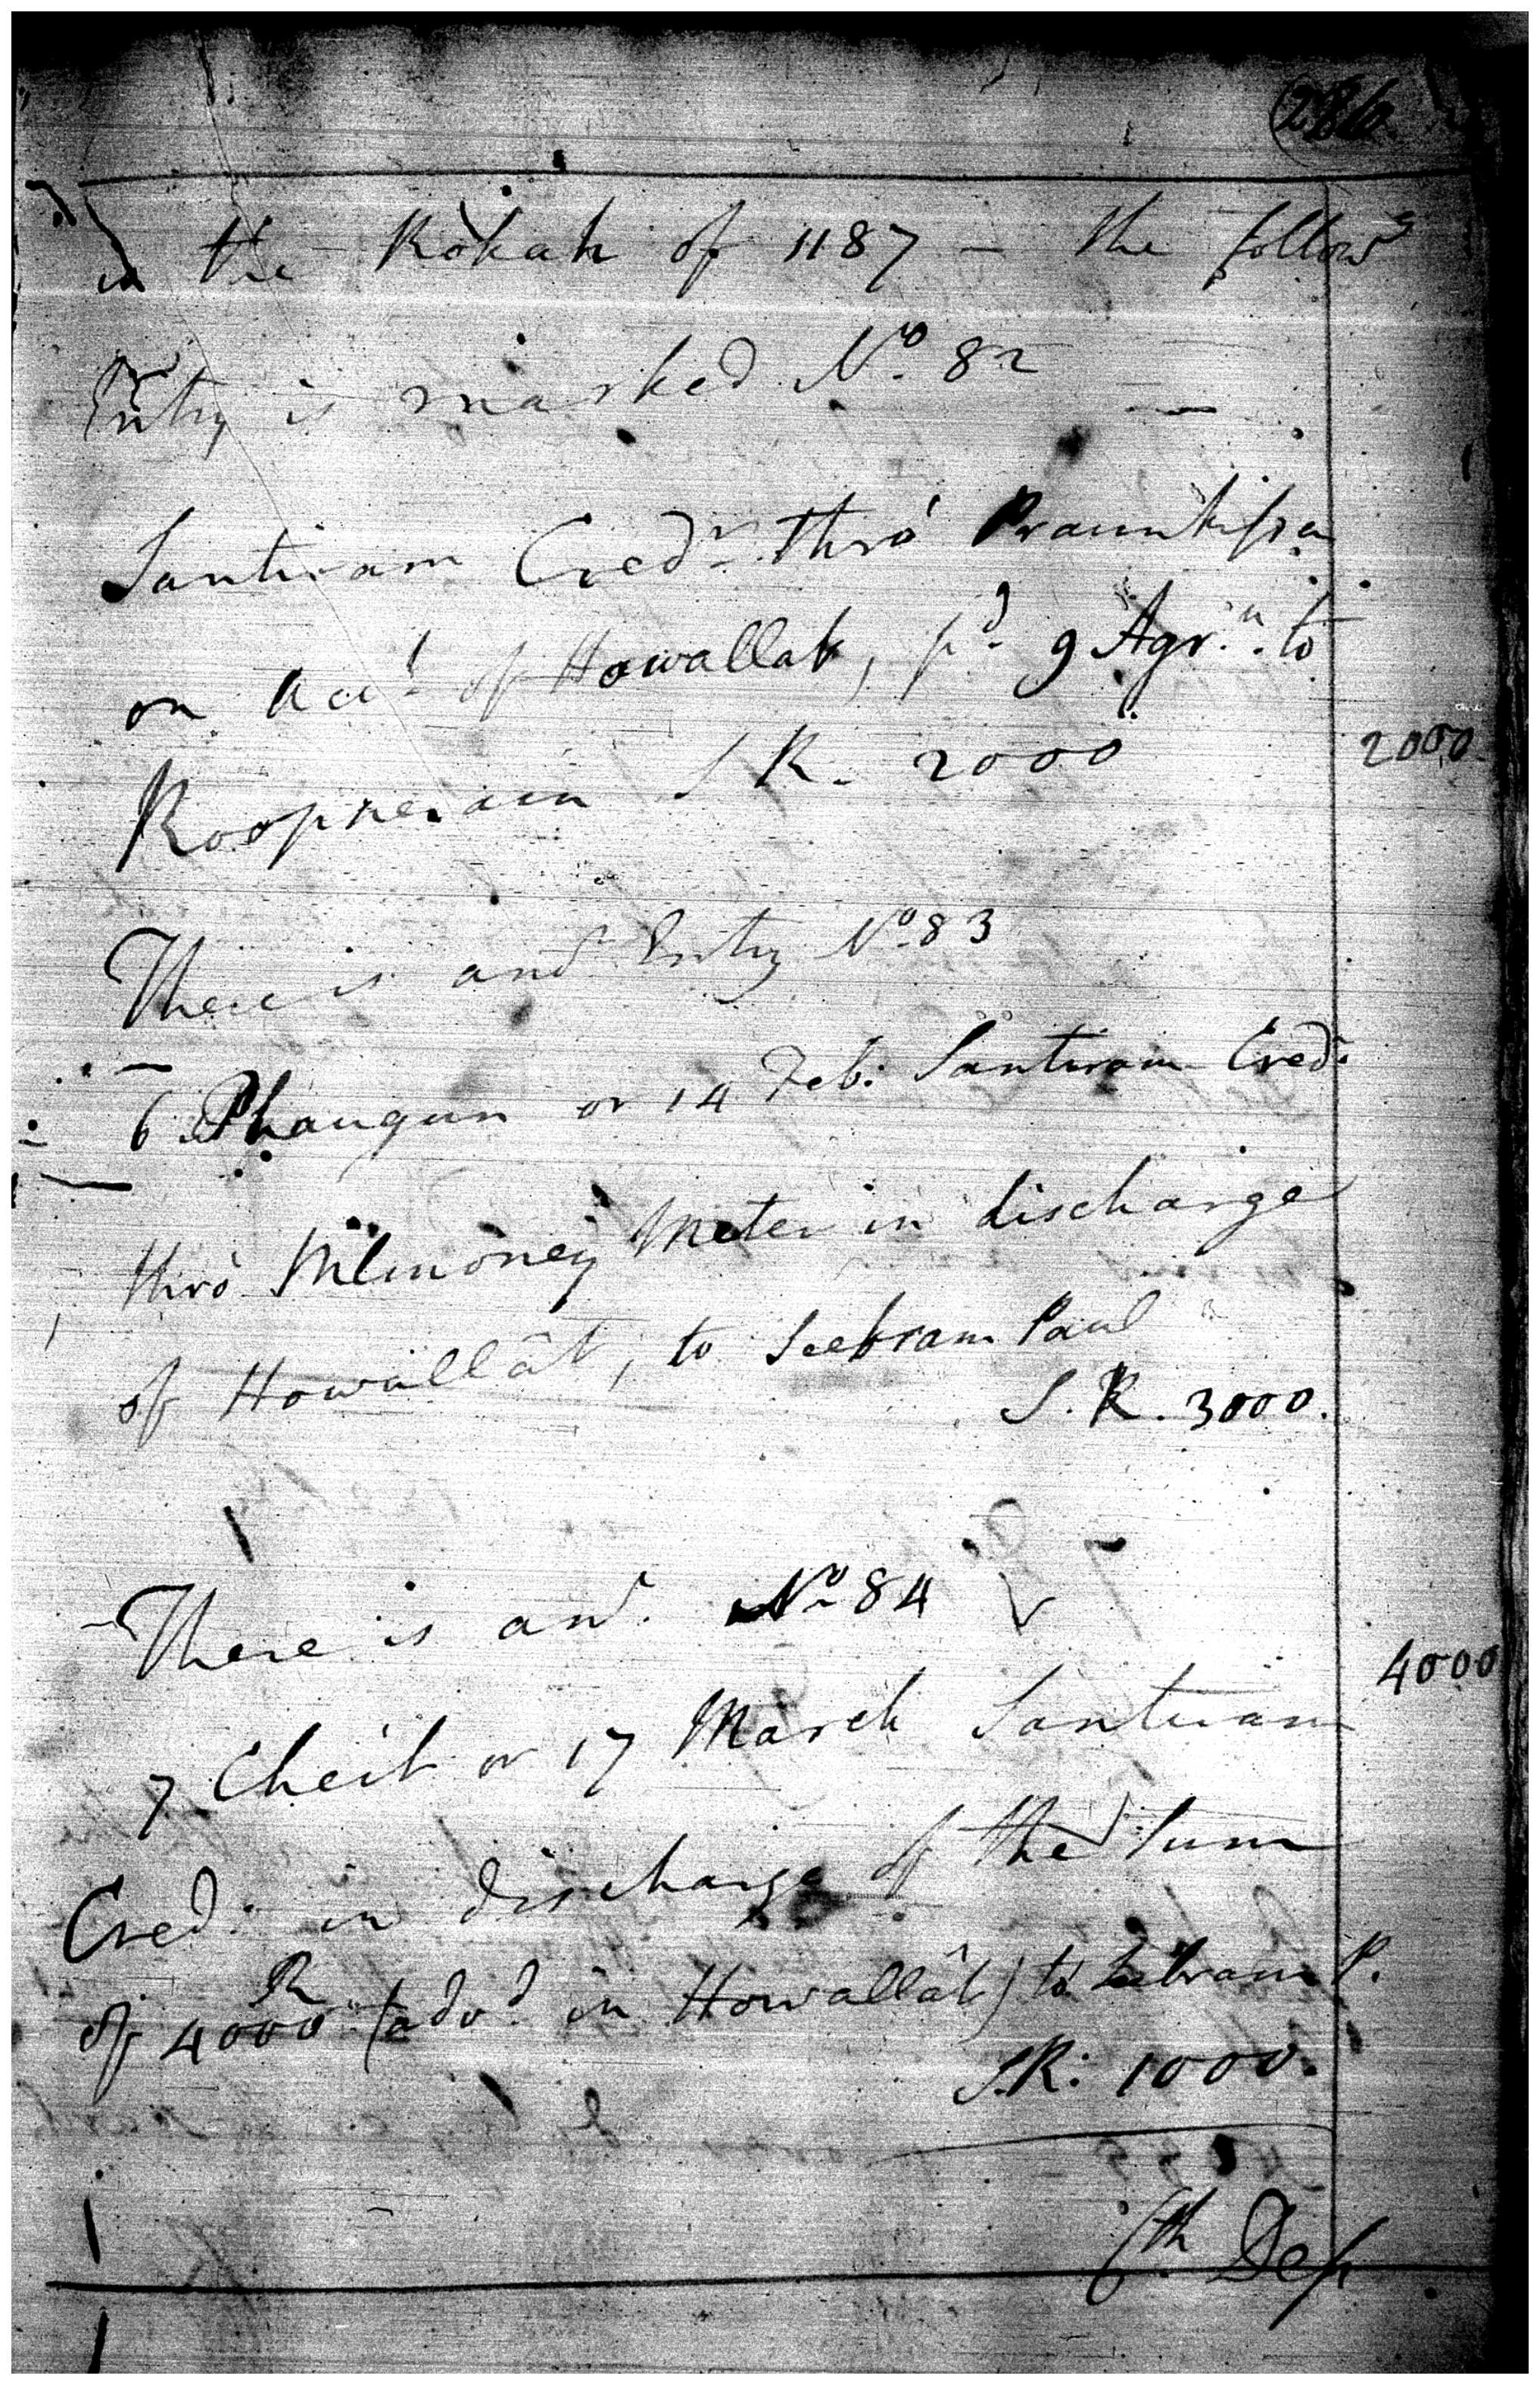 286
in the Rokah of 1187 – the followg
Entry is marked No. 82
Santiram Credr. thro' Prauntissa
on Acct. of Howallat, pd. 9 Agrn. to
Roopnerain S R. 2000
2000
There is anor Entry No. 83
6 Phaugun or 14 Feb: Santiram Cred:
thro' Nilmoney Meter in discharge
of Howallât, to Seebram Paul
S. R. 3000.
There is anor. No. 84
4000
7 Cheit or 17 March Santiram
Cred: in discharge of the Sum
of 4000 R (advd. in Howallât) to Seebram P.
S.R: 1000.
The Dep